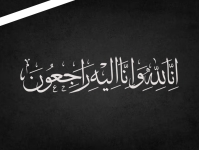 اِنَّا لِلّٰهِ وَ اِنَّا اِلَيْهِ رَاجِعُوْنَ